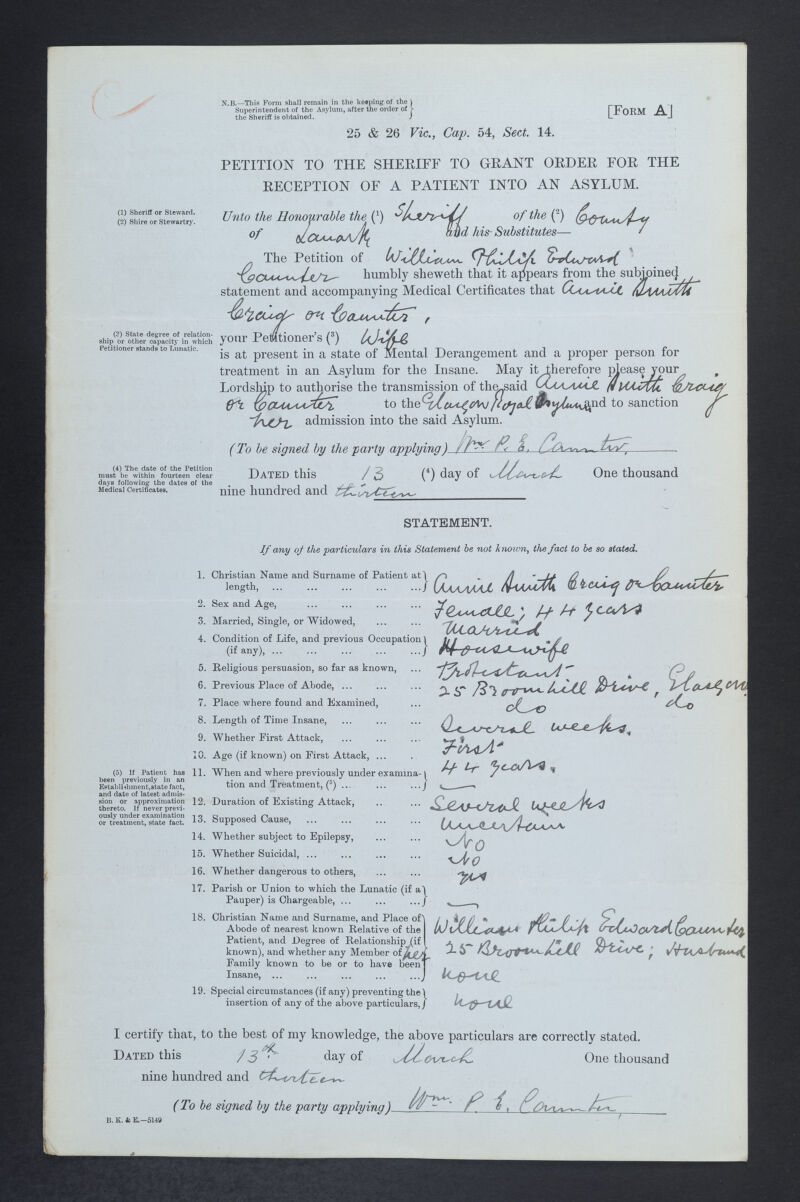 N.B.—This Form shall remain in the keeping of the
Superintendent of the Asylum, after the order of
the Sheriff is obtained.
[FORM A]
25 & 26 Vic., Cap. 54, Sect. 14.
PETITION TO THE SHERIFF TO GRANT ORDER FOR THE
RECEPTION OF A PATIENT INTO AN ASYLUM.
(1) Sheriff or Steward.
(2) Shire or Stewartry.
Unto the Honourable the (1) Sheriff of the (2) County
of Lanark and his Substitutes—
The Petition of William Philip Edward
Caunter humbly sheweth that it appears from the subjoined
statement and accompanying Medical Certificates that Annie Smith
Craig or Caunter,
(3) State degree of relation-
ship or other capacity in which
Petitioner stands to Lunatic.
your Petitioner's (3) Wife
is at present in a state of Mental Derangement and a proper person for
treatment in an Asylum for the Insane. May it therefore please your
Lordship to authorise the transmission of the said Annie Smith Craig
or Caunter to the Glasgow Royal Asylum and to sanction
her admission into the said Asylum.
(To be signed by the party applying) Wm. P. E. Caunter.
(4) The date of the Petition
must be within fourteen clear
days following the dates of the
Medical Certificates.
DATED this 13 (4) day of March One thousand
nine hundred and thirteen
STATEMENT.
If any of the particulars in this Statement be not known, the fact to be so stated.
1. Christian Name and Surname of Patient at
length, ... ... ... ... ... Annie Smith Craig or Caunter
2. Sex and Age, ... ... ... ... Female; 44 years
3. Married, Single, or Widowed, ... ... Married
4. Condition of Life, and previous Occupation
(if any), ... ... ... ... ... Housewife
5. Religious persuasion, so far as known, ... Protestant
6. Previous Place of Abode, ... ... ... 25 Broomhill Drive, Glasgow
7. Place where found and Examined, ... do do
8. Length of Time Insane, ... ... ... Several weeks.
9. Whether First Attack, ... ... ... First
10. Age (if known) on First Attack, ... . 44 years.
(5) If Patient has
been previously in an
Establishment, state fact,
and date of latest admis-
sion or approximation
thereto. If never previ-
ously under examination
or treatment, state fact.
11. When and where previously under examina-
tion and Treatment, (5) ... ... ... —
12. Duration of Existing Attack, .. ... Several weeks
13. Supposed Cause, ... ... ... ... Uncertain
14. Whether subject to Epilepsy, ... ... No
15. Whether Suicidal, ... ... ... ... No
16. Whether dangerous to others, ... ... yes
17. Parish or Union to which the Lunatic (if a
Pauper) is Chargeable, ... ... ... —
18. Christian Name and Surname, and Place of
Abode of nearest known Relative of the
Patient, and Degree of Relationship (if
known), and whether any Member of her
Family known to be or to have been
Insane, ... ... ... ... ...
William Philip Edward Caunter
25 Broomhill Drive; Husband
none
19. Special circumstances (if any) preventing the
insertion of any of the above particulars, none
I certify that, to the best of my knowledge, the above particulars are correctly stated.
DATED this 13th. day of March One thousand
nine hundred and thirteen
(To be signed by the party applying) Wm. P. E. Caunter,
B. K. & E.—5149